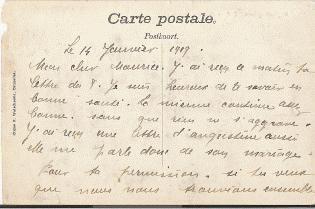 Carte postale.
Postkaart.
Le 14 Janvier 1919.
Mon cher Maurice. J'ai reçu ce matin ta
lettre du 8. Je suis heureux de te savoir en
bonne santé. La mienne continue assez
bonne. sans que rien ne s'aggrave.
J'ai reçu une lettre d'augustine aussi
elle me parle donc de son mariage.
Pour ta permission. si tu veux
que nous nous trouvions ensemble